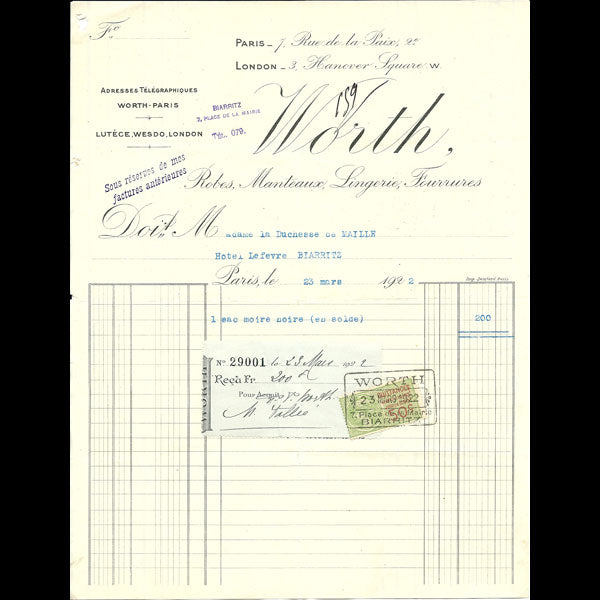 Fo
PARIS_7, Rue de la Paix, 2e
LONDON_3, Hanover Square. W.
ADRESSES TÉLÉGRAPHIQUES
WORTH-PARIS
LUTÈCE, WESDO, LONDON
BIARRITZ
7, PLACE DE LA MAIRIE
TÉL. 079.
159
Worth,
Sous réserves de mes
factures antérieures
Robes, Manteaux, Lingerie, Fourrures
Doit Madame la Duchesse de MAILLE
Hotel Lefevre BIARRITZ
Paris, le 23 mars 1922
1 sac moire noire (en solde) 200
WORTH
No 29001 le 23 Mars 1922
Reçu Fr. 200
Pour Acquit
Worth
WORTH
23 1922
7. Place de la Mairie
BIARRITZ